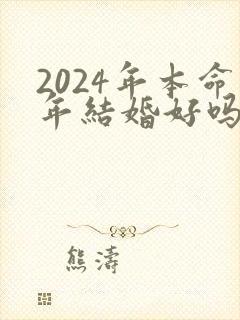 2024年本命
年結婚好吗
熊濤